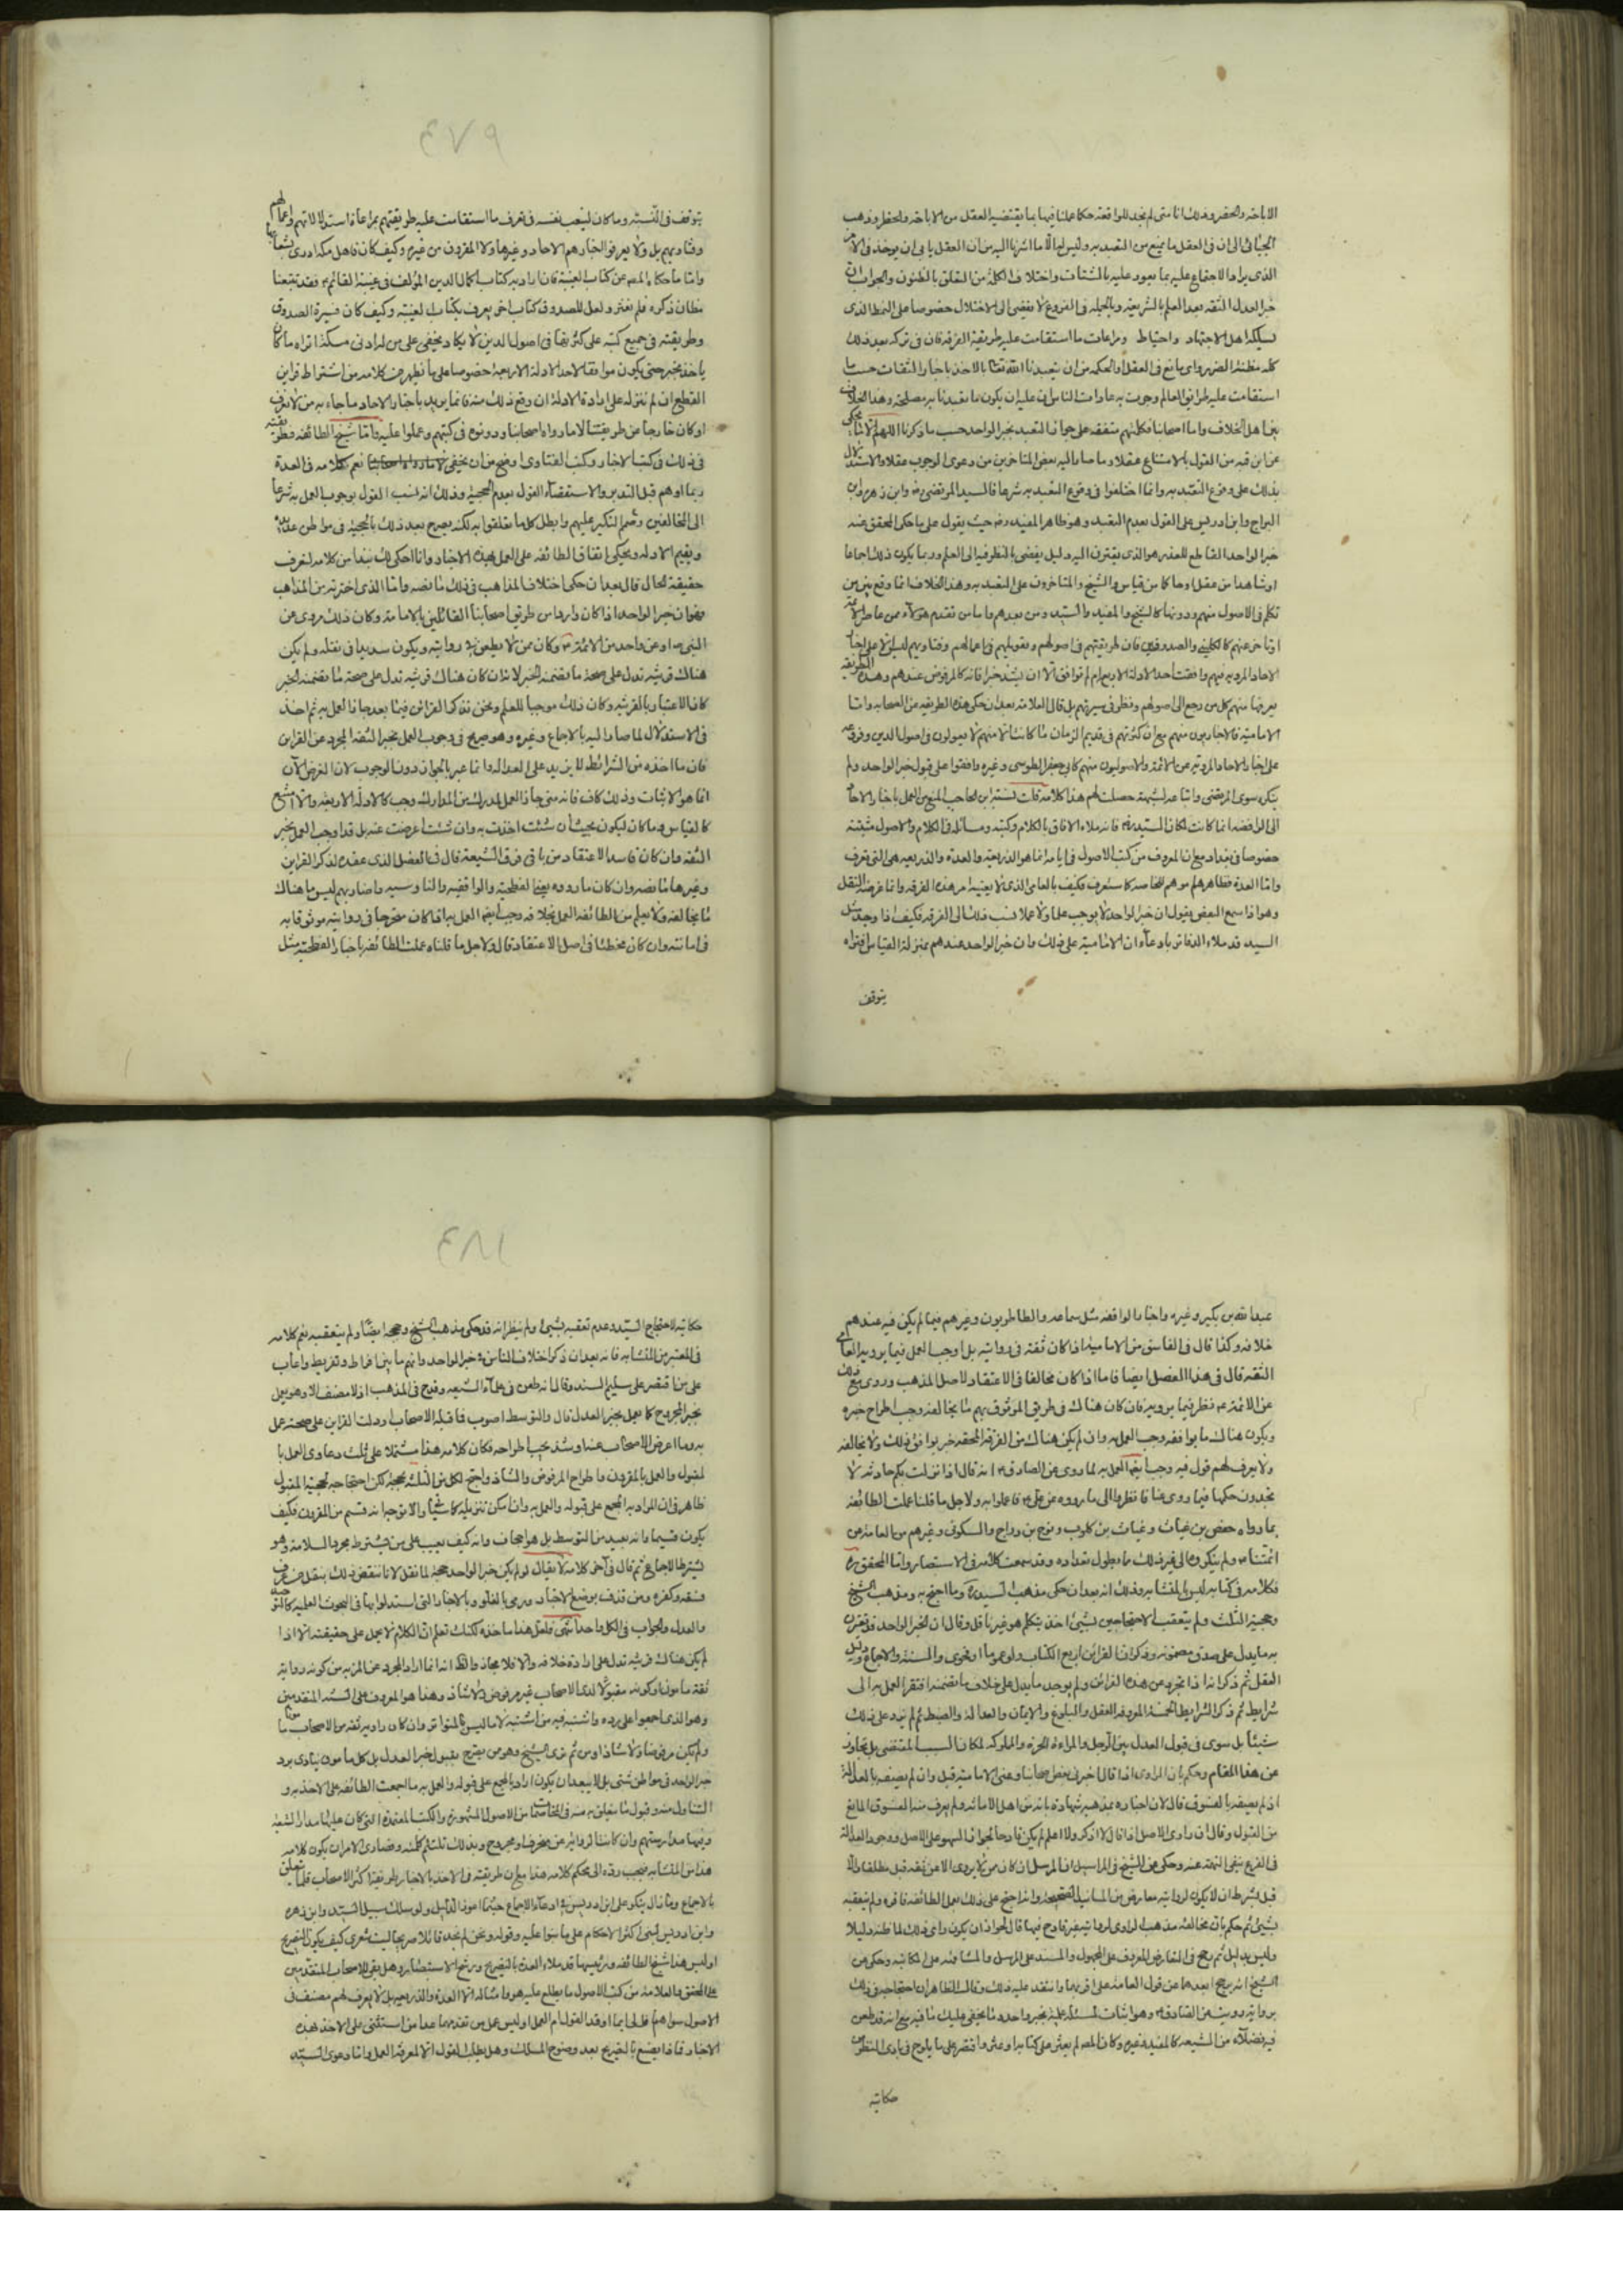 الاباحة والحظر وذلك انا متى لم نجد للواقعة حكما عملنا فيها بما يقتضيه العقل من الاباحة والحظر وذهب
الجبائي الى ان في العقل ما يمنع من التعبد به وليس لها الا ما اشرنا اليه من ان العقل يابى ان يوخذ في الامر
الذي يراد الاجتماع عليه بما يعود عليه بالشتات واختلاف الكلمة من التعلق بالظنون والجواب ان
خبر العدل الثقة بعد العلم بالشريعة وبالجملة في الفروع لا يفضي الى الاختلال خصوصا على النمط الذي
يسلكه اهل الاجتهاد واحتياط ومراعات ما استقامت عليه طريقة الفرقة فان في تركه بعد ذلك
كله مظنة الضرر واي مانع في العقل والحكمة من ان يتعبدنا الله تعالى بالاخذ باخبار الثقات حسب ما
استقامت عليه طرائق العالم وجرت به عادات الناس ان علم ان يكون ما تعبدنا به مصلحة وهذا الخلاف
بين اهل الخلاف واما اصحابنا فكلهم متفقه على جواز التعبد بخبر الواحد حسب ما ذكرنا اللهم الا ما يحكى
عن ابن قبه من القول بالامتناع عقلا وما صار اليه بعض المتاخرين من دعوى الوجوب عقلا والاستدلال
بذلك على وقوع التعبد به وانما اختلفوا في وقوع التعبد به شرعا فالسيد المرتضى ره وابن زهره وابن
البراج وابن ادريس على القول بعدم التعبد وهو ظاهر المفيد ره حيث يقول على ما حكى المحقق عنه
خبر الواحد القاطع للعذر هو الذي يقترن اليه دليل يفضي بالنظر فيه الى العلم وربما يكون ذلك اجماعا
او شاهدا من عقل او حاكما من قياس والشيخ والمتاخرون على التعبد به وهذا الخلاف انما وقع بين من
تكلم في الاصول منهم ودونها كالشيخ والمفيد والسيد ومن بعدهم واما من تقدم هؤلاء ممن عاصر الائمة
او تاخر عنهم كالكليني والصدوقين فان طريقتهم في اصولهم وتعويلهم في اعمالهم وفتاويهم ليس الا على اخبار
الاحاد المروية فيهم وافقت احد الادلة الاربعة ام لم توافق الا ان يشذ خبر فانه كالمرفوض عندهم وهذه الطريقة
يعرفها منهم كل من رجع الى اصولهم ونظر في سيرتهم بل قال العلامة بعد ان حكى هذه الطريقة عن الصحابة واما
الامامية فالاخباريون منهم مع ان كثرتهم في قديم الزمان ما كانت الا منهم لا يعولون في اصول الدين وفروعه
على اخبار الاحاد المروية عن الائمة والاصوليون منهم كابي جعفر الطوسي وغيره وافقوا على قبول خبر الواحد ولم
ينكره سوى المرتضى واتباعه لشبهة حصلت لهم هذا كلامه قلت نسبة ابن الحاجب المنع من العمل باخبار الاحاد
الى الرافضة انما كانت لمكان السيد ره فانه ملاء الافاق بالكلام وكتبه ومسائله في الكلام والاصول مثبتة
خصوصا في بغداد مع ان المعروف من كتب الاصول في ايامه انما هو الذريعة والعدة والذريعة هي التي تعرف
واما العدة فظاهرهم موهم للخاصة كما ستعرف فكيف بالعامي الذي لا يعنيه امر هذه الفرقة وانما غرضه النقل
وهو اذا سمع البعض يقول ان خبر الواحد لا يوجب علما ولا عملا نسب ذلك الى الفرقة فكيف اذا وجد مثل
السيد قد ملاء الدفاتر بادعاء ان الامامية على ذلك وان خبر الواحد عندهم بمنزلة القياس افتراه
يتوقف
٤٧٩
يتوقف في النسبة وما كان ليتعب نفسه في تعرف ما استقامت عليه طريقتهم بمراعاة استدلالاتهم واعمالهم
وفتاويهم بل ولا يعرف الاخبارهم الاحاد وغيرها ولا المقرون من غيره وكيف كان فاهل مكة ادرى بشعابها
واما ما حكاه المص عن كتاب الغيبة فان اراد به كتاب اكمال الدين المؤلف في غيبة القائم ع فقد تتبعنا
مظان ذكره فلم نعثر ولعل للصدوق كتاب اخر يعرف بكتاب الغيبة وكيف كان فسيرة الصدوق
وطريقته في جميع كتبه على كثرتها في اصول الدين لا يكاد يخفى على من له ادنى مسكة اتراه ما كان
ياخذ بخبر حتى يكون موافقا لاحد الادلة الاربعة خصوصا على ما يظهر من كلامه من اشتراط قراين
القطع ان لم ننزله على ارادة الادلة ان وقع ذلك منه فانما يريد باخبار الاحاد ما جاء به من لا يعرف
او كان خارجا عن طريقتنا لا ما رواه اصحابنا ودونوه في كتبهم وعملوا عليه واما شيخ الطائفة فطريقته
في ذلك في كتب الاخبار وكتب الفتاوى اوضح من ان يخفى نعم كلامه في العدة
ربما اوهم قبل التدبر والاستقصاء القول بعدم الحجية وذلك انه نسب القول بوجوب العمل به شرعا
الى المخالفين وضم النكير عليهم وابطل كل ما تعلقوا به لكنه يصرح بعد ذلك بالحجية في مواطن عديدة
ويقيم الادلة ويحكي اتفاق الطائفة على العمل بهذه الاخبار وانا احكي لك نبذا من كلامه لتعرف
حقيقة الحال قال بعد ان حكى اختلاف المذاهب في ذلك ما نصه واما الذي اخترته من المذاهب
فهو ان خبر الواحد اذا كان واردا من طريق اصحابنا القائلين بالامامة وكان ذلك مروي عن
النبي ص او عن واحد من الائمة ع وكان ممن لا يطعن في روايته ويكون سديدا في نقله ولم يكن
هناك قرينة تدل على صحة ما تضمنه الخبر لانه ان كان هناك قرينة تدل على صحة ما تضمنه الخبر
كان الاعتبار بالقرينة وكان ذلك موجبا للعلم ونحن نذكر القرائن فيما بعد جاز العمل به ثم اخذ
في الاستدلال لما صار اليه بالاجماع وغيره وهو صريح في وجوب العمل بخبر الثقة المجرد عن القراين
فان ما اخذه من الشرائط لا يزيد على العدالة وانما عبر بالجواز دون الوجوب لان الغرض الآن
انما هو الاثبات وذلك كاف فانه متى جاز العمل لمدرك من المدارك وجب كالادلة الاربعة والا امتنع
كالقياس وما كان ليكون بحيث ان شئت اخذت به وان شئت اعرضت عنه بل قد اوجب العمل بخبر
الثقة وان كان فاسد الاعتقاد من باقي فرق الشيعة قال في الفصل الذي عقده لذكر القراين
وغيرها ما نصه وان كان ما رووه يعني الفطحية والواقفية والناوسية واضرابهم ليس ما هناك
ما يخالفه ولا يعلم من الطائفة العمل بخلافه وجب ايضا العمل به اذا كان متحرجا في روايته موثوقا به
في امانته وان كان مخطئا في اصل الاعتقاد قال ولاجل ما قلناه عملت الطائفة باخبار الفطحية مثل
عبد الله بن بكير وغيره واخبار الواقفة مثل سماعه والطاطريون وغيرهم فيما لم يكن فيه عندهم
خلافه وكذا قال في الفاسق من الامامية اذا كان ثقة في روايته بل اوجب العمل فيما يرويه العامي
الثقة قال في هذا الفصل ايضا فاما اذا كان مخالفا في الاعتقاد لاصل المذهب وروى مع ذلك
عن الائمة ع نظر فيما يرويه فان كان هناك في طريق الموثوق بهم ما يخالفه وجب اطراح خبره
ويكون هناك ما يوافقه وجب العمل به وان لم يكن هناك من الفرقة المحقة خبر يوافق ذلك ولا يخالفه
ولا يعرف لهم قول فيه وجب ايضا العمل به لما روي عن الصادق ع انه قال اذا نزلت بكم حادثة لا
تجدون حكمها فيما روي عنا فانظروا الى ما رووه عن علي ع فاعملوا به ولاجل ما قلنا عملت الطائفة
بما رواه حفص بن غياث وغياث بن كلوب ونوح بن دراج والسكوني وغيرهم من العامة عن
ائمتنا ع ولم ينكروه الى غير ذلك ما يطول تعداده وقد سمعت كلامه في الاستبصار واما المحقق ره
فكلامه في كتابه ليس بالمتشابه وذلك انه بعد ان حكى مذهب السيد ره وما احتج به ومذهب الشيخ
وحججه الثلث ولم يتعقب الاحتجاجين بشيئ اخذ يتكلم هو غير ناقل وقال ان الخبر الواحد قد تقترن
به ما يدل على صدق مضمونه وذكر ان القراين اربع الكتاب ولو عموما او فحوى والسنة والاجماع ودليل
العقل ثم ذكر انه اذا تجرد عن هذه القرائن ولم يوجد ما يدل على خلاف ما تضمنه افتقر العمل به الى
شرايط ثم ذكر الشرايط الخمسة المعروفة العقل والبلوغ والايمان والعدالة والضبط ثم لم يزد على ذلك
شيئا بل سوى في قبول العدل بين الرجل والمراءة الحرة والمملوكة لمكان السبب المقتضي بل تجاوز
عن هذا المقام وحكم بان الراوي اذا قال اخبرني بعض اصحابنا وعنى الامامية قبل وان لم يصفه بالعدالة
اذ لم يصفه بالفسوق قال لان اخباره بمذهبه شهادة بانه من اهل الامانة ولم يعرف منه الفسوق المانع
من القبول وقال ان راوي الاصل اذا قال لا اذكر ولا اعلم لم يكن قادحا لجواز السهو على الاصل ووجود العدالة
في الفرع تنفي التهمة عنه وحكى عن الشيخ في المراسيل ان المرسل ان كان ممن لا يروي الا عن ثقة قبل مطلقا والا
قبل بشرط ان لا يكون لروايته معارض من المسانيد الصحيحة وانه احتج على ذلك بعمل الطائفة فاقره ولم يتعقبه
بشيئ ثم حكم بان مخالفة مذهب الراوي لروايته غير قادح فيها قال لجواز ان يكون راى ذلك لما ظنه دليلا
وليس بدليل ثم رجح في التعارض المعروف على المجهول والمسند على المرسل والمشافهة على المكاتبة وحكى عن
الشيخ انه يرجح ابعدهما عن قول العامة على اقربهما وانتقد عليه ذلك وقال الظاهر ان احتجاجه في ذلك
برواية رويت عن الصادق ع وهو اثبات لمسئلة علمية بخبر واحد وما يخفى عليك ما فيه مع انه قد طعن
فيه فضلآء من الشيعة كالمفيد وغيره وكان المص لم يعثر على كتابه او عثر واقتصر على ما يلوح في بادي النظر من
حكايته
٤٨١
حكايته لاحتجاج السيد وعدم تعقبه بشيئ ولم ينظر انه قد حكى مذهب الشيخ وحججه ايضا ولم يتعقبه نعم كلامه
في المعتبر من المتشابه فانه بعد ان ذكر اختلاف الناس في خبر الواحد وانهم ما بين افراط وتفريط واعاب
على من اقتصر على سليم السند وقال انه طعن في علماء الشيعة وقدح في المذهب اذ لا مصنف الا وهو يعمل
بخبر المجروح كما يعمل بخبر العدل قال والتوسط اصوب فما قبله الاصحاب او دلت القراين على صحته عمل
به وما اعرض الاصحاب عنه او شذ يجب اطراحه فكان كلامه هذا مشتملا على ثلث دعاوى العمل با
لمقبول والعمل بالمقرون واطراح المرفوض والشاذ واحتج لكل من الثلثة بحجة لكن احتجاجه لحجية المقبول
ظاهر في ان المراد به المجمع على قبوله والعمل به وان امكن تنزيله كما شئنا والا توجه انه قسم من المقرون فكيف
يكون قسيما وانه بعيد من التوسط بل هو اجحاف وانه كيف يعيب على من يشترط مجرد السلامة وهو
يشترط الاجماع ثم قال في آخر كلامه لا يقال لو لم يكن خبر الواحد حجة لما نقل لانا ننقض ذلك بنقل خبر من عرف
فسقه وكفره ومن قذف بوضع الاخبار ورمي بالغلو وبالاخبار التي استدلوا بها في البحوث العلمية كالتوحيد
والعدل والجواب في الكل واحد انتهى فلعل هذا ماخذه لكنك تعلم ان الكلام لا يحمل على حقيقته الا اذا
لم يكن هناك قرينة تدل على ارادة خلافه والا فلا مجاز والظ انه انما اراد المجرد عن المزية من كونه رواية
ثقة مامون او كونه مقبولا لدى الاصحاب غير مرفوض ولا شاذ وهذا هو المعروف على السنة المتقدمين
وهو الذي اجمعوا على رده واشتبه فيه من اشتبه لا ما ليس بالمتواتر وان كان راويه ثقة من الاصحاب مامونا
ولم يكن مرفوضا ولا شاذا ومن ثم ترى الشيخ وهو من يصرح بقبول خبر العدل بل كل مامون ينادى برد
خبر الواحد في مواطن شتى بل لا يبعد ان يكون اراد بالمجمع على قبوله والعمل به ما اجمعت الطائفة على الاخذ به و
التناول منه وقبول ما يتعلق به منه في المقامات من الاصول المشهورة والكتب المعتمدة التي كان عليها مدار الشيعة
وفيها مدارستهم وان كانت الرواية عن منحرف او مجروح وبذلك تلتئم كلمته وقصارى الامر ان يكون كلامه
هذا من المتشابه فيجب رده الى محكم كلامه هذا مع ان طريقته في الاخذ بالاخبار طريقة اكثر الاصحاب قلما يتعلق
بالاجماع وما زال ينكر على ابن ادريس في ادعاء الاجماع حيثما اعوزه الدليل ولو سلك سبيل السيد وابن زهره
وابن ادريس لبنى اكثر الاحكام على ما بنوا عليه وقوله ونحن لم نجد قائلا صريحا ليت شعري كيف يكون التصريح
او ليس هذا شيخ الطائفة ورئيسها قد ملاء العدة بالتصريح ورشح الاستبصار وهل بقي للاصحاب المتقدمين
على المحقق والعلامة من كتب الاصول ما يطلع عليه هو وامثاله الا العدة والذريعة بل لا يعرف لهم مصنف في
الاصول سواهما قل لي ايما اوقد القول ام العمل او ليس عمل من تقدمهما عدا من استثني على الاخذ بهذه
الاخبار فماذا يصنع بالتصريح بعد وضوح المسلك وهل يطلب القول الا لمعرفة العمل واما دعوى السيد